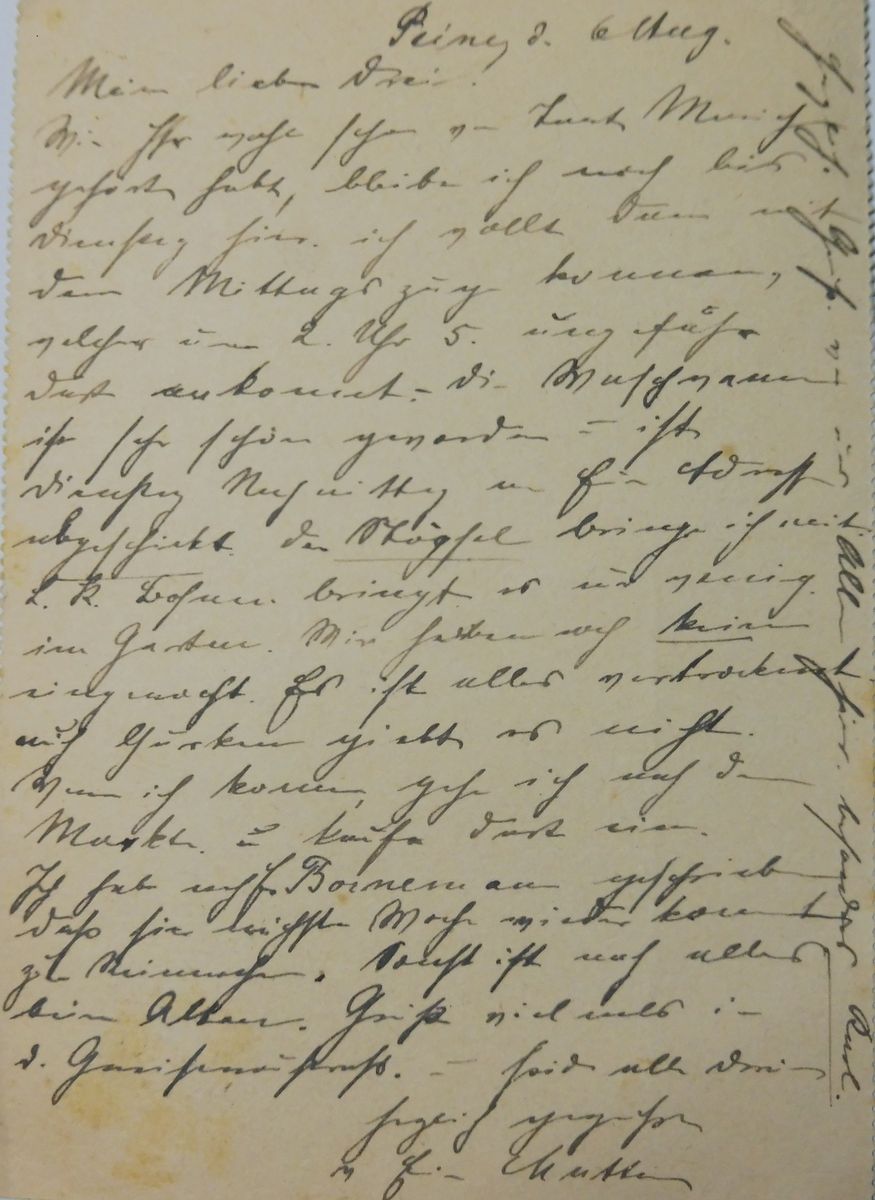 Peine, d. 6 Aug.
Meine lieben Drei!
Wie Ihr wohl schon von Tante
gehört habt, bleibe ich noch bis
Dienstag hier. ich wollte dann mit
dem Mittagszuge kommen,
welcher um 2. Uhr 5. ungefähr
dort ankomt. – die Waschwanne
ist sehr schön geworden – ist
Dienstag Nachmittag an E. Adresse
abgeschickt. den Stöpsel bringe ich mit.
Bohnen bringt es nur wenig.
im Garten. Wir haben noch keine
eingemacht. Es ist alles vertrocknet
auch Gurken giebt es nicht.
Wenn ich komme, gehe ich nach dem
Markte u kaufe dort ein.
Ich habe auch Fr Bornemann geschrieben
daß sie nächste Woche wieder kommt
zum Reinmachen. Sonst ist noch alles
beim Alten. Grüße vielmals in
d. Gneisenaustraß. – Seid alle drei
herzlich gegrüßt
v E. Mutter
Gruß von uns Allen hier. besonders Karl.